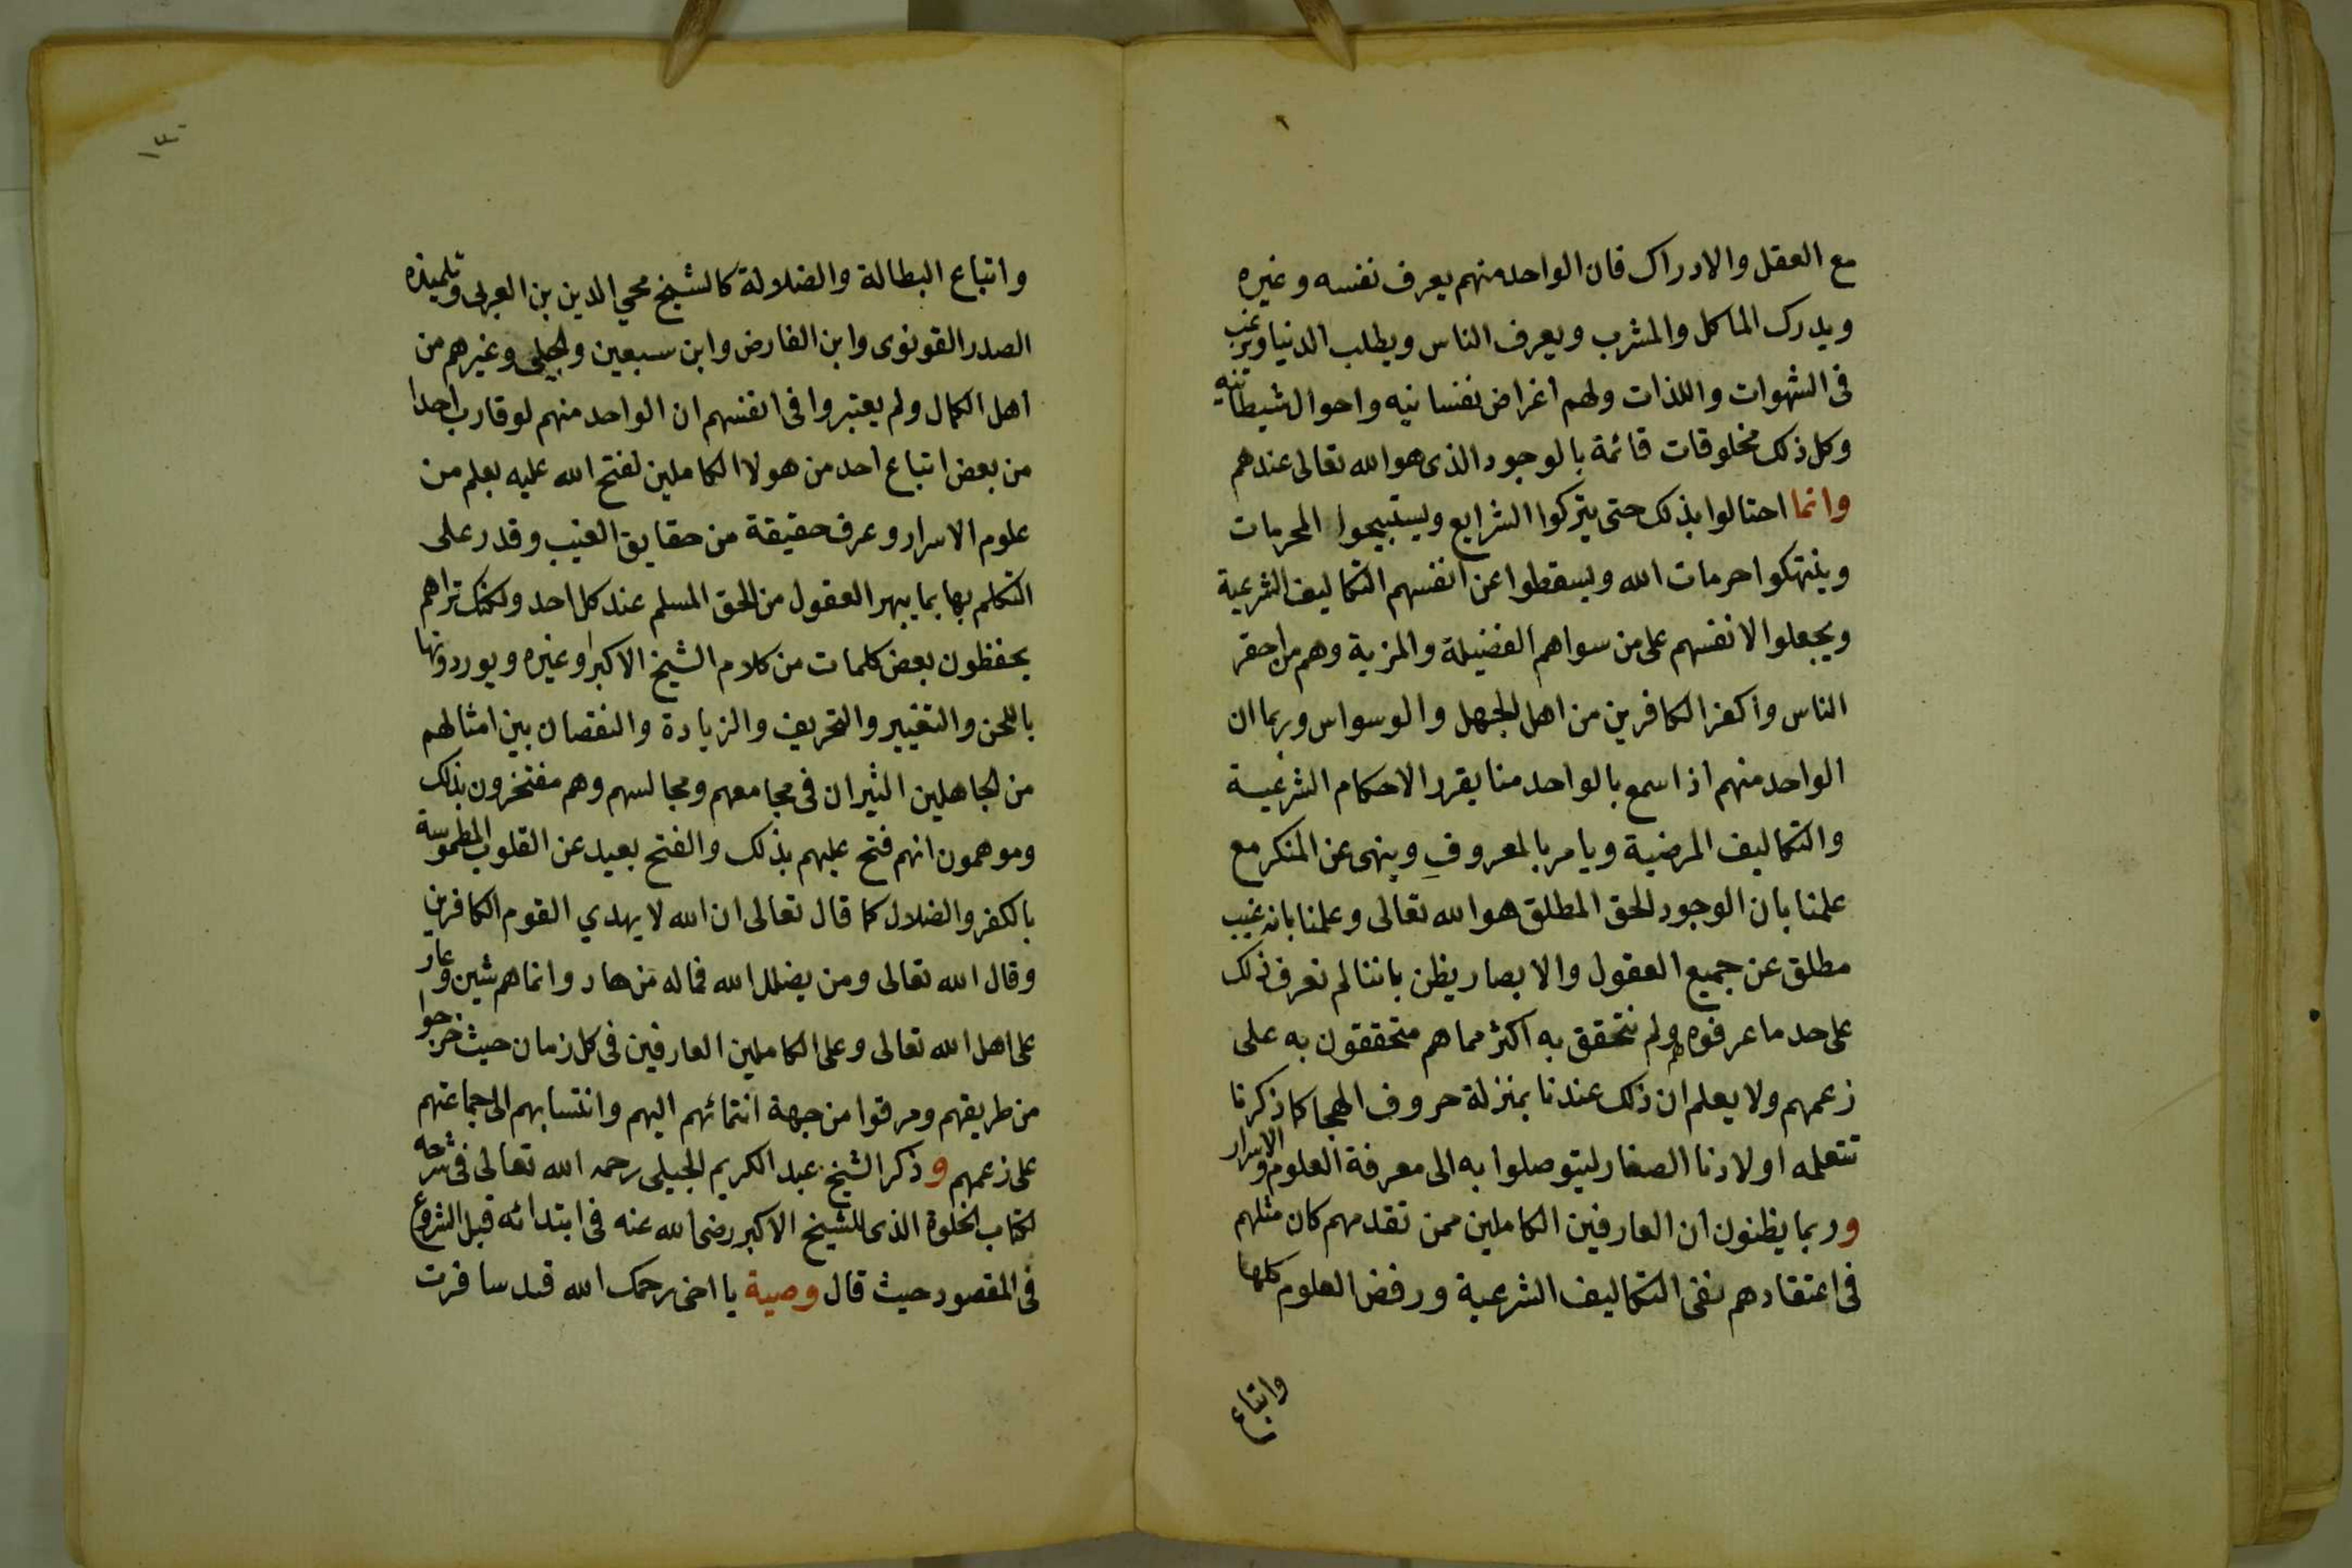 مع العقل والادراك فان الواحد منهم يعرف نفسه وغيره
ويدرك الماكل والمشرب ويعرف الناس ويطلب الدنيا ويرغب
فى الشهوات واللذات ولهم اغراض نفسانيه واحوال شيطانيه
وكل ذلك مخلوقات قائمة بالوجود الذى هو الله تعالى عندهم
وانما احتالوا بذلك حتى يتركوا الشرايع ويستبيحوا المحرمات
وينتهكوا حرمات الله ويسقطوا عن انفسهم التكاليف الشرعية
ويجعلوا لانفسهم على من سواهم الفضيلة والمزية وهم من احقر
الناس واكفر الكافرين من اهل الجهل والوسواس وربما ان
الواحد منهم اذا سمع بالواحد منا يقرر الاحكام الشرعية
والتكاليف المرضية ويامر بالمعروف وينهى عن المنكر مع
علمنا بان الوجود الحق المطلق هو الله تعالى وعلمنا بانه غيب
مطلق عن جميع العقول والابصار يظن باننا لم نعرف ذلك
على حد ما عرفوه هم ولم نتحقق به اكثر مما هم متحققون به على
زعمهم ولا يعلم ان ذلك عندنا بمنزلة حروف الهجا كما ذكرنا
تتعلمه اولادنا الصغار ليتوصلوا به الى معرفة العلوم والاسرار
وربما يظنون ان العارفين الكاملين ممن تقدمهم كان مثلهم
فى اعتقادهم نفى التكاليف الشرعية ورفض العلوم كلها
واتباع
١٣٠
واتباع البطالة والضلالة كالشيخ محي الدين بن العربى وتلميذه
الصدر القونوى وابن الفارض وابن سبعين والجيلى وغيرهم من
اهل الكمال ولم يعتبروا فى انفسهم ان الواحد منهم لو قارب احدا
من بعض اتباع احد من هولا الكاملين لفتح الله عليه بعلم من
علوم الاسرار وعرف حقيقة من حقايق الغيب وقدر على
التكلم بها بما يبهر العقول من الحق المسلم عند كل احد ولكنك تراهم
يحفظون بعض كلمات من كلام الشيخ الاكبر او غيره ويوردونها
باللحن والتغيير والتحريف والزيادة والنقصان بين امثالهم
من الجاهلين الثيران فى مجامعهم ومجالسهم وهم مفتخرون بذلك
وموهمون انهم فتح عليهم بذلك والفتح بعيد عن القلوب المطموسة
بالكفر والضلال كما قال تعالى ان الله لا يهدي القوم الكافرين
وقال الله تعالى ومن يضلل الله فماله من هاد وانما هم شين وعار
على اهل الله تعالى وعلى الكاملين العارفين فى كل زمان حيث خرجوا
من طريقهم ومرقوا من جهة انتمائهم اليهم وانتسابهم الى جماعتهم
على زعمهم وذكر الشيخ عبد الكريم الجيلى رحمه الله تعالى فى شرحه
لكتاب الخلوة الذى للشيخ الاكبر رضى الله عنه فى ابتدائه قبل الشروع
فى المقصود حيث قال وصية يا اخى رحمك الله قد سافرت